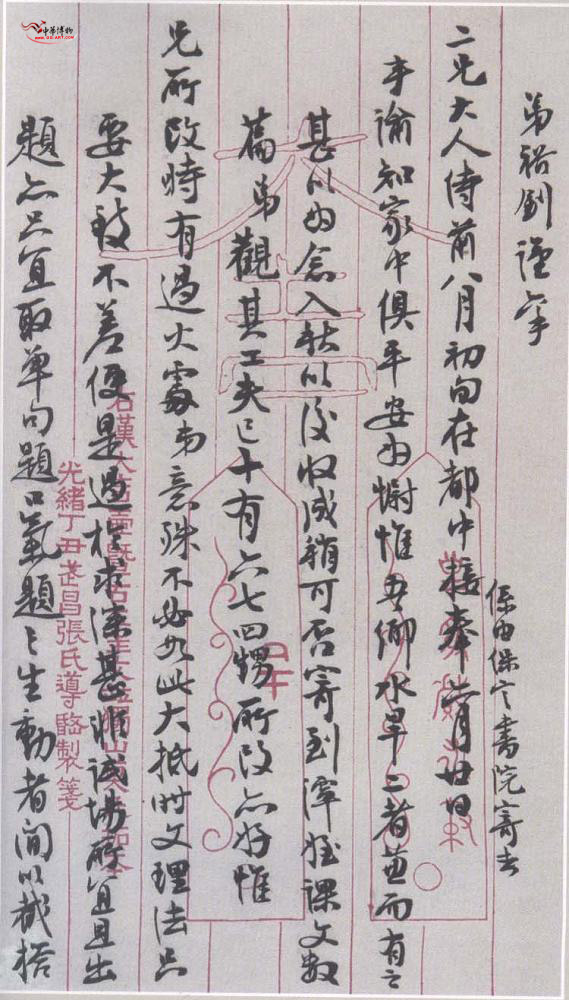 弟裕釗謹稟
二兄大人侍前八月初旬在都中接奉六月廿日
係由保定書院寄去
手諭知家中俱平安為慰惟吾鄉水旱二者並而有之
甚以為念入秋以後收成稍可否寄到澤姪課文數
篇弟觀其工夫已十有六七四甥所改亦好惟
兄所改時有過火處弟意殊不必如此大抵時文理法只
要大致不差便是過於求深甚非試場所宜且出
題亦只宜取單句題口氣題之生動者間以截搭
光緒丁丑武昌張氏導䜭製箋
中華博物